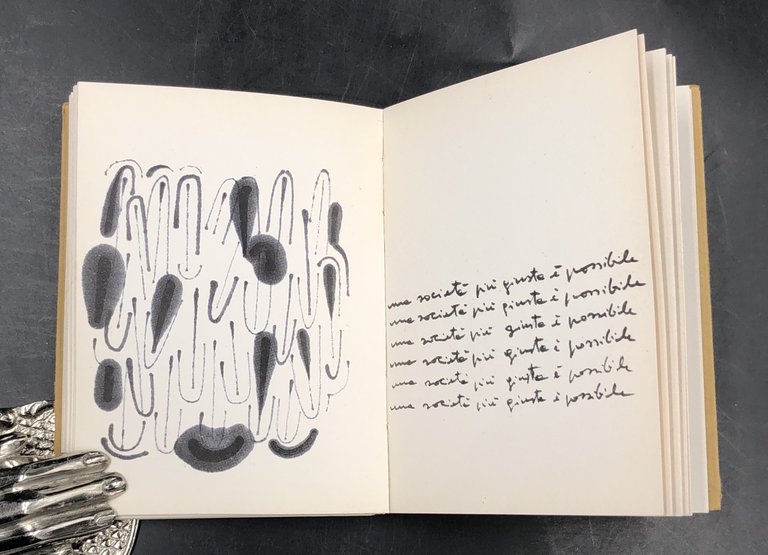 una società più giusta è possibile
una società più giusta è possibile
una società più giusta è possibile
una società più giusta è possibile
una società più giusta è possibile
una società più giusta è possibile